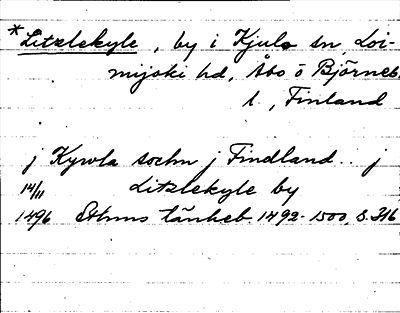 *Litzlekyle, by i Kjulo sn, Loi-
mijoki hd, Åbo o Björneb.
l., Finland
j Kywla sochn j Findland .. j
14/11 Litzlekyle by
1496 Sthms tänkeb. 1492-1500, s. 316